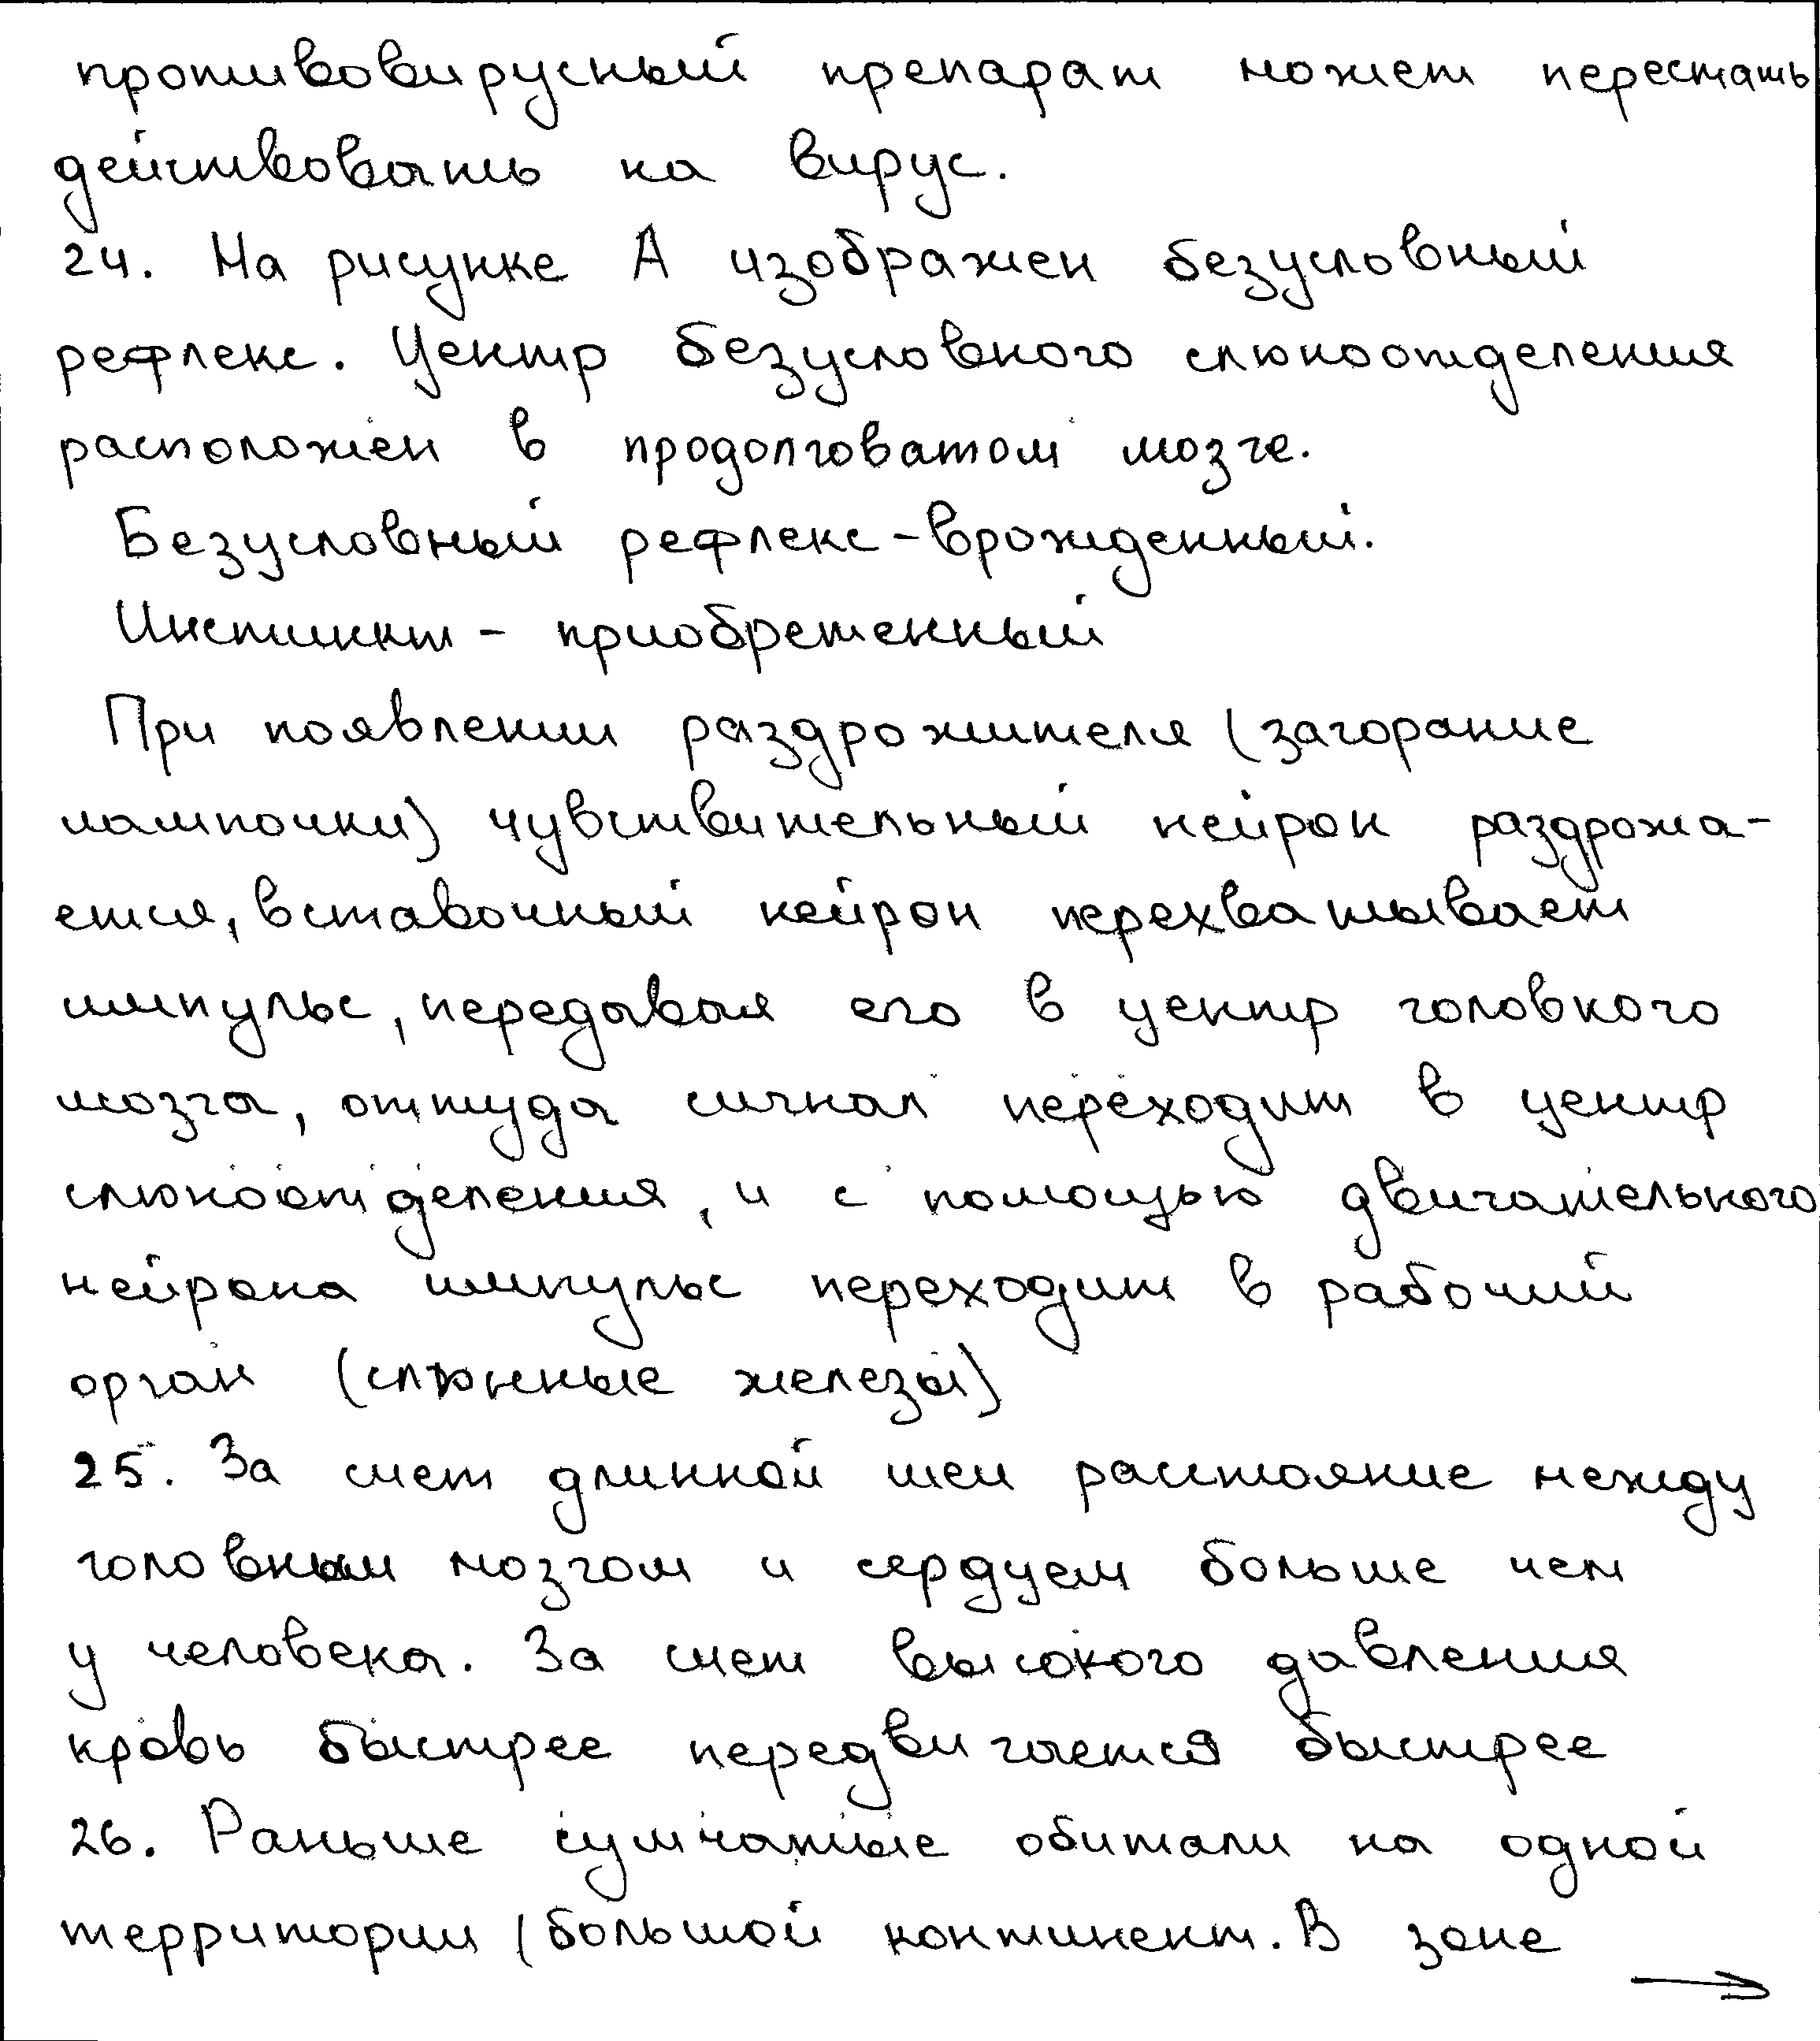 противовирусный препарат может перестать
действовать на вирус.
24. На рисунке А изображен безусловный
рефлекс. Центр безусловного слюноотделения
расположен в продолговатом мозге.
Безусловный рефлекс - врожденный.
Инстинкт - приобретенный
При появлении раздрожителя (загорание
лампочки) чувствительный нейрон раздрожа-
ется, вставочный нейрон перехватывает
импульс, передавая его в центр головного
мозга, оттуда сигнал переходит в центр
слюноотделения, и с помощью двигательного
нейрона импульс переходит в рабочий
орган (слюнные железы)
25. За счет длинной шеи расстояние между
головным мозгом и сердцем больше чем
у человека. За счет высокого давления
кровь быстрее передвигается быстрее
26. Раньше сумчатые обитали на одной
территории (большой континент. В зоне